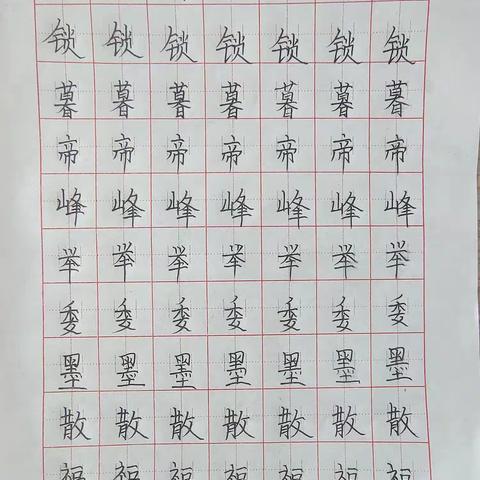 锁 锁 锁 锁 锁 锁 锁
暮 暮 暮 暮 暮 暮 暮
帝 帝 帝 帝 帝 帝 帝
峰 峰 峰 峰 峰 峰 峰
举 举 举 举 举 举 举
委 委 委 委 委 委 委
墨 墨 墨 墨 墨 墨 墨
散 散 散 散 散 散 散